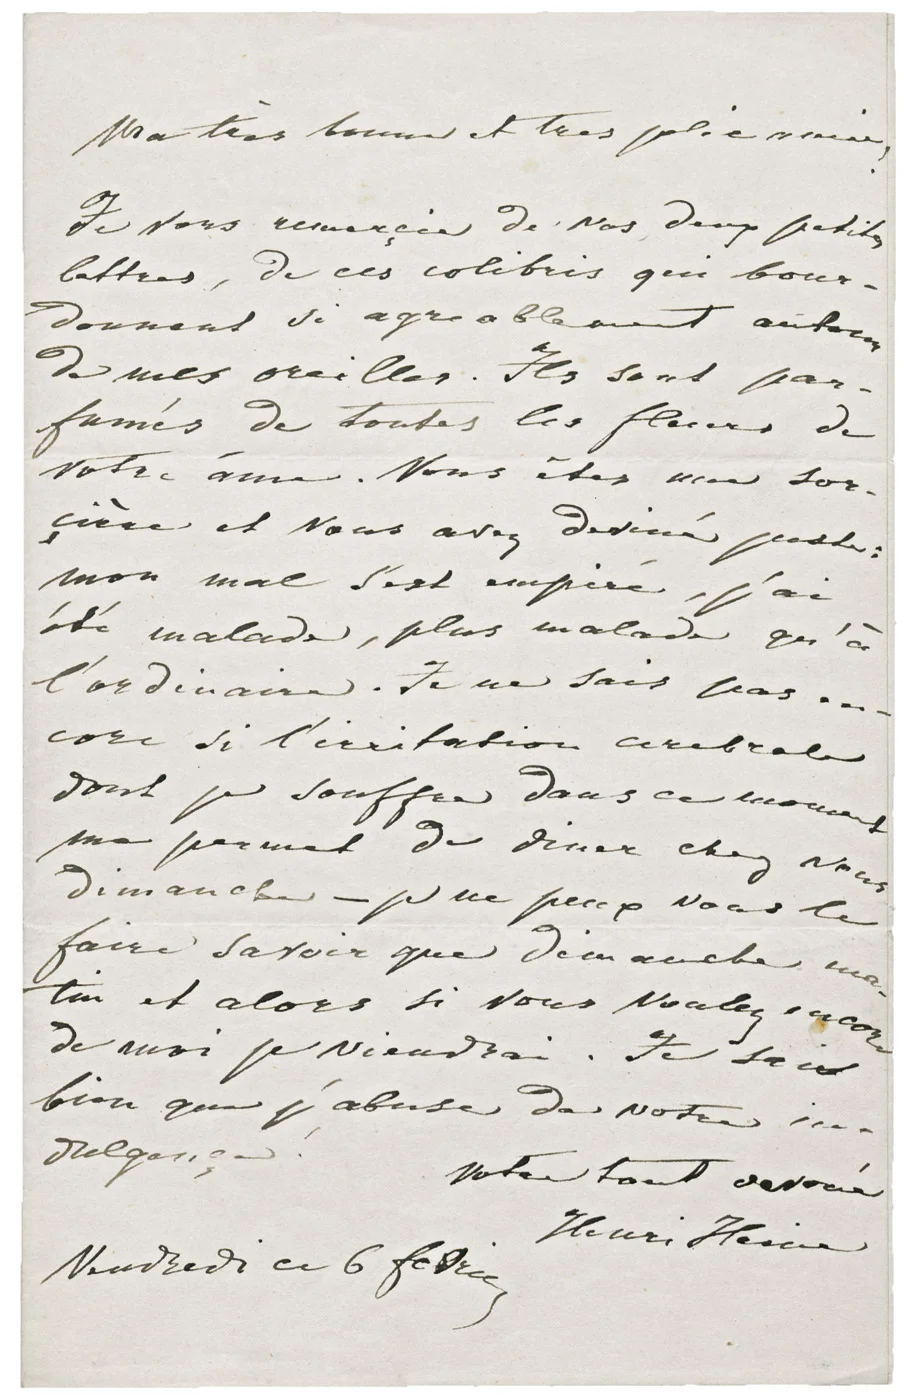 Ma très bonne et très jolie amie,
Je vous remerçie de vos deux petites
lettres, de ces colibris qui bour-
donnent si agreablement autour
de mes oreilles. Ils sont par-
fumés de toutes les fleurs de
votre âme. Vous êtes une sor-
çière et vous avez deviné juste:
mon mal s'est empiré, j'ai
été malade, plus malade qu'à
l'ordinaire. Je ne sais pas en-
core si l'irritation cerebrale
dont je souffre dans ce moment
me permet de diner chez vous
dimanche – je ne peux vous le
faire savoir que dimanche ma-
tin et alors si vous voulez encore
de moi je viendrai. Je sais
bien que j'abuse de votre in-
dulgençe!
votre tout devoué
Henri Heine
Vendredi ce 6 fevrier